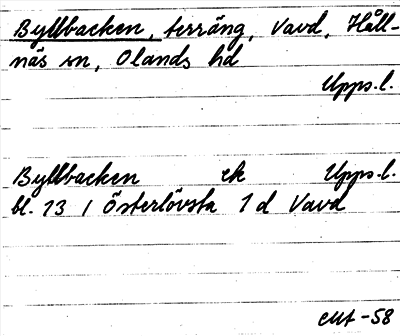 Byllbacken, terräng, Vavd, Håll-
näs sn, Olands hd
Upps.l.
Byllbacken ek Upps.l.
bl. 13 I Österlövsta 1 d Vavd
-58